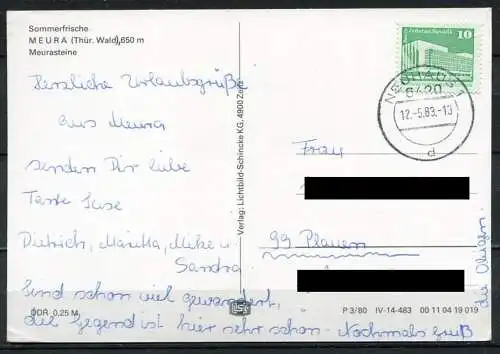 Sommerfrische
MEURA (Thür. Wald), 650 m
Meurasteine
Herzliche Urlaubsgrüße
aus Meura
senden Dir liebe
Tante Suse
Dietrich, Maritta, Mike u.
Sandra
Sind schon viel gewandert,
die Gegend ist hier sehr schön. Nochmals Gruß
die Obigen.
DDR 0,25 M
Verlag: Lichtbild-Schincke KG, 4900 Zeitz
10
NEUHAUS 1
6420
12.-5.83.-13
d
Frau
99 Plauen
P 3/80 IV-14-483 00 11 04 19 019